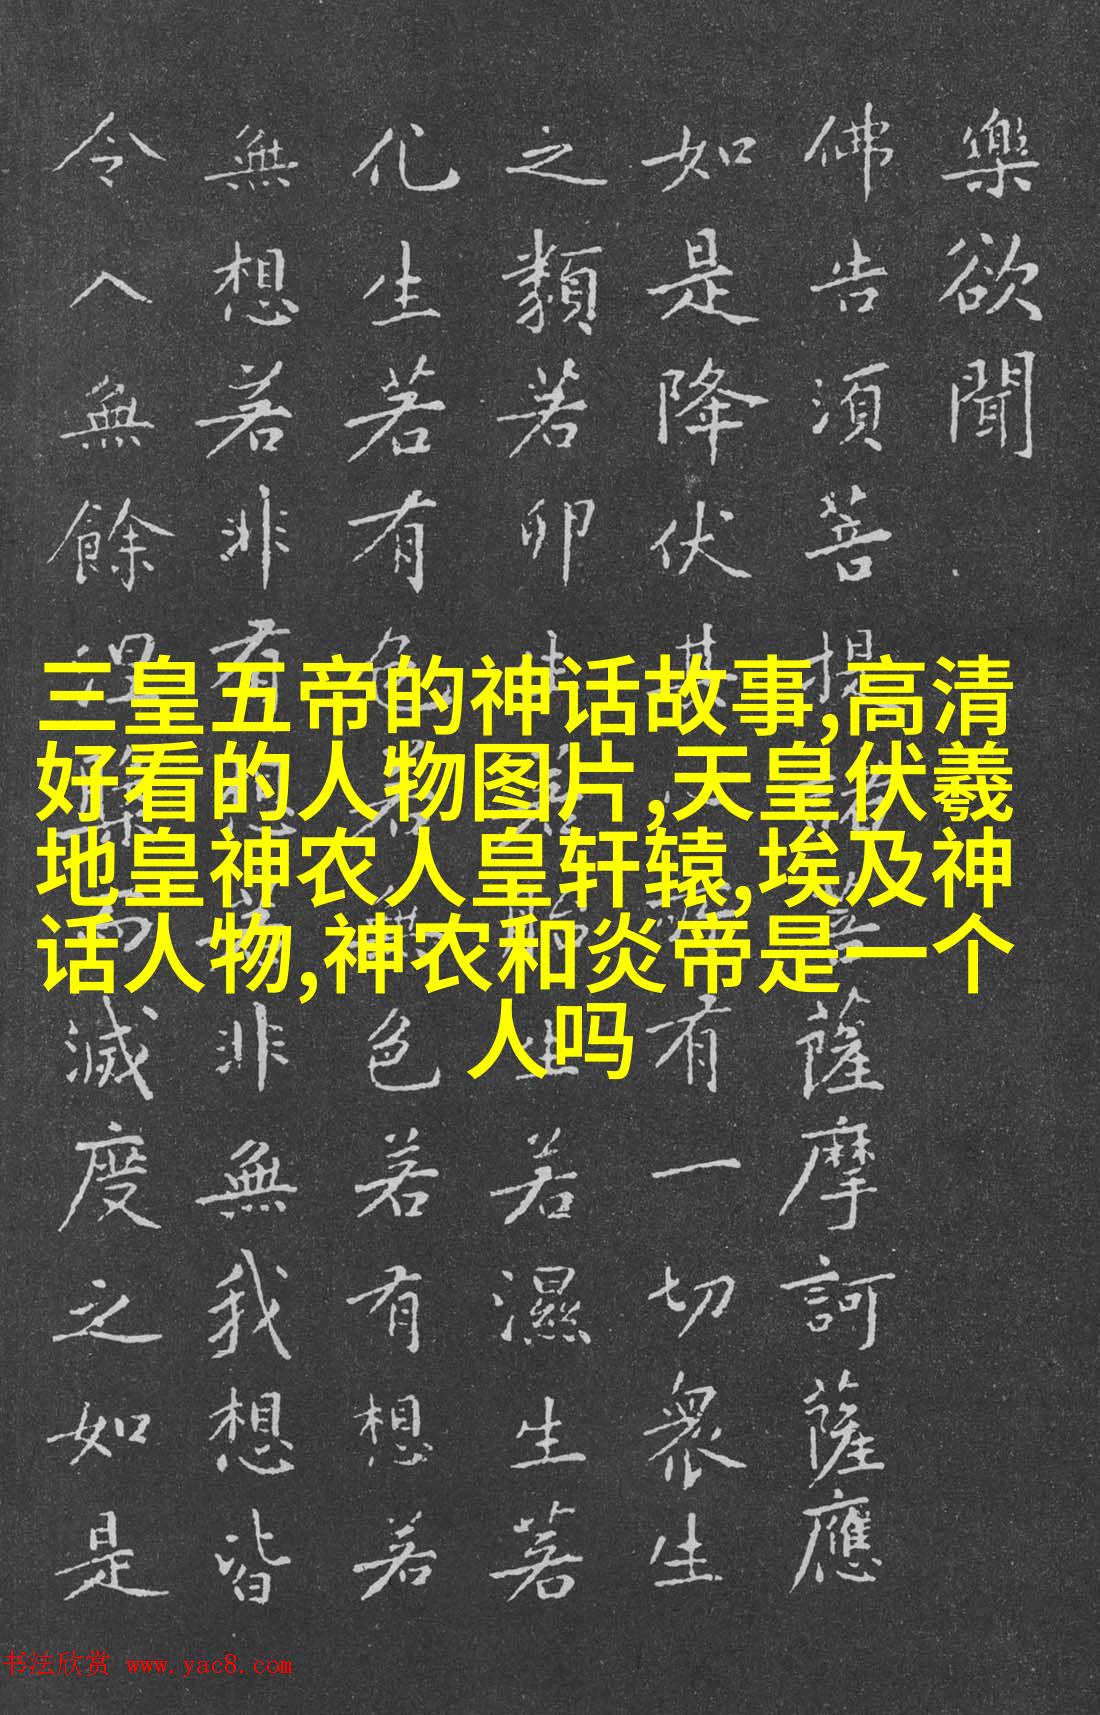 樂欲聞
佛告須菩提諸菩薩摩訶薩應
如是降伏其心所有一切衆生
之類若卵生若胎生若濕生若
化生若有色若無色若有想若
無想若非有想若非無我想皆
令入無餘涅槃而滅度之如是
三皇五帝的神话故事,高清
好看的人物图片,天皇伏羲
地皇神农人皇轩辕,埃及神
话人物,神农和炎帝是一个
人吗
书法欣赏 www.yac8.com